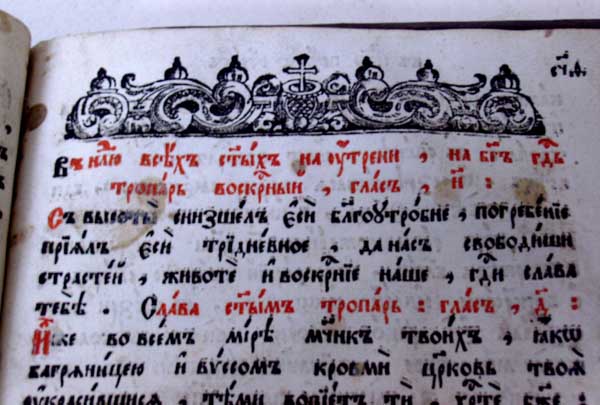 Въ нл҃ю всѣхъ ст҃ыхъ на оу҆́трени , на бг҃ъ гд҇ь
тропарь воскр҇ный , гласъ , и҃ :
Съ высоты̀ снизшелъ є҆сѝ блг҃оꙋтробне , погребенїе
прїѧ́лъ є҆сѝ триⷣневное , да насъ свободиши
страстей , животе и҆ воскр҇нїе наше , гд҇и слава
тебѣ . Слава ст҃ымъ тропарь : гласъ , д҃ :
И҆́же во всемъ мїрѣ мч҃нкъ твоихъ , ꙗ҆́кѡ
багрѧницею и҆ вѵссомъ кровми цр҃ковь твоѧ̀
оу҆красившисѧ , тѣми вопїетъ тѝ , хрⷭ҇те бж҃е :